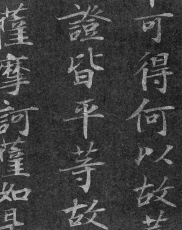 可得何以故
證皆平等故
薩摩訶薩如是